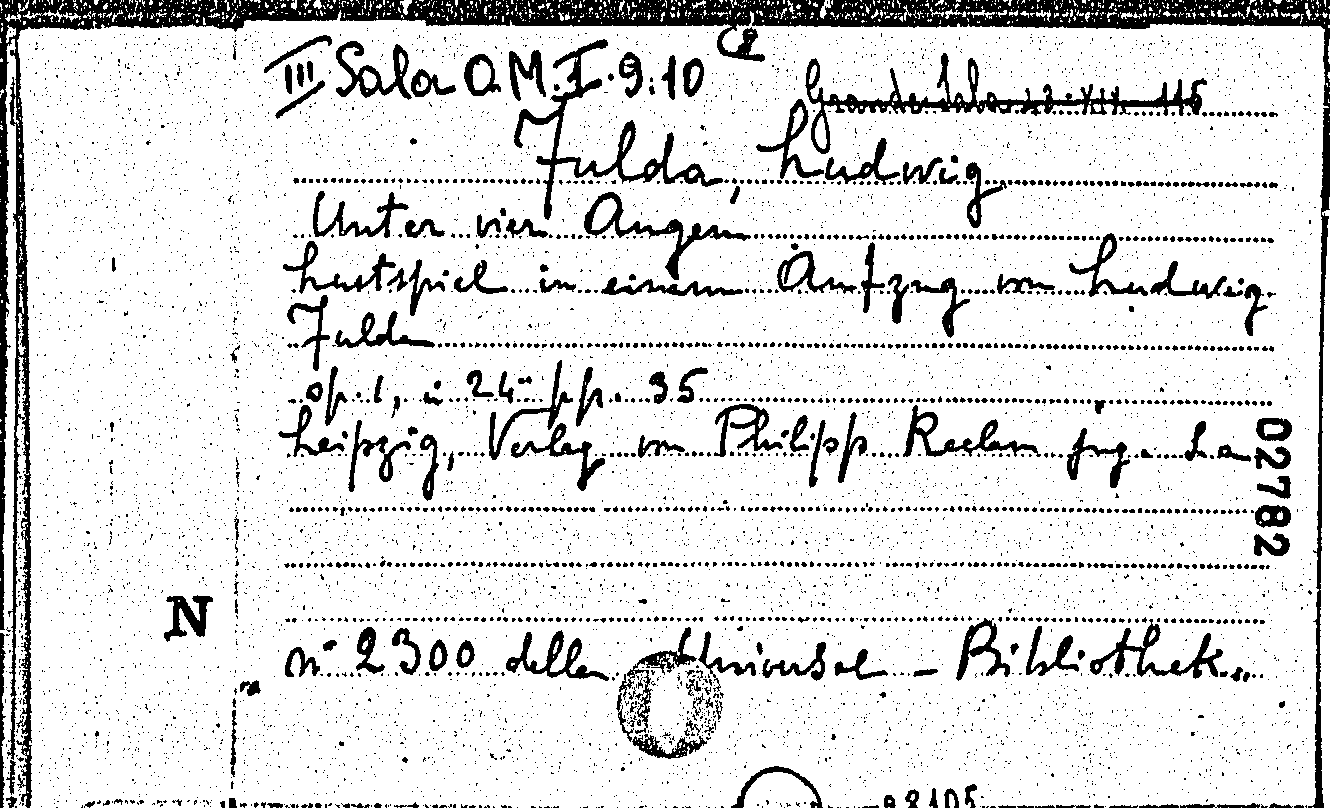 III Sala O.M.I.9.10
Grande Sala 23.XII. 115
Fulda, Ludwig
Unter vier Augen
Lustspiel in einem Aufzug von Ludwig
Fulda
op. 1, in 24° pp. 35
Leipzig, Verlag von Philipp Reclam jug. S. a
02782
N
n° 2300 della Universal - Bibliothek.
98105